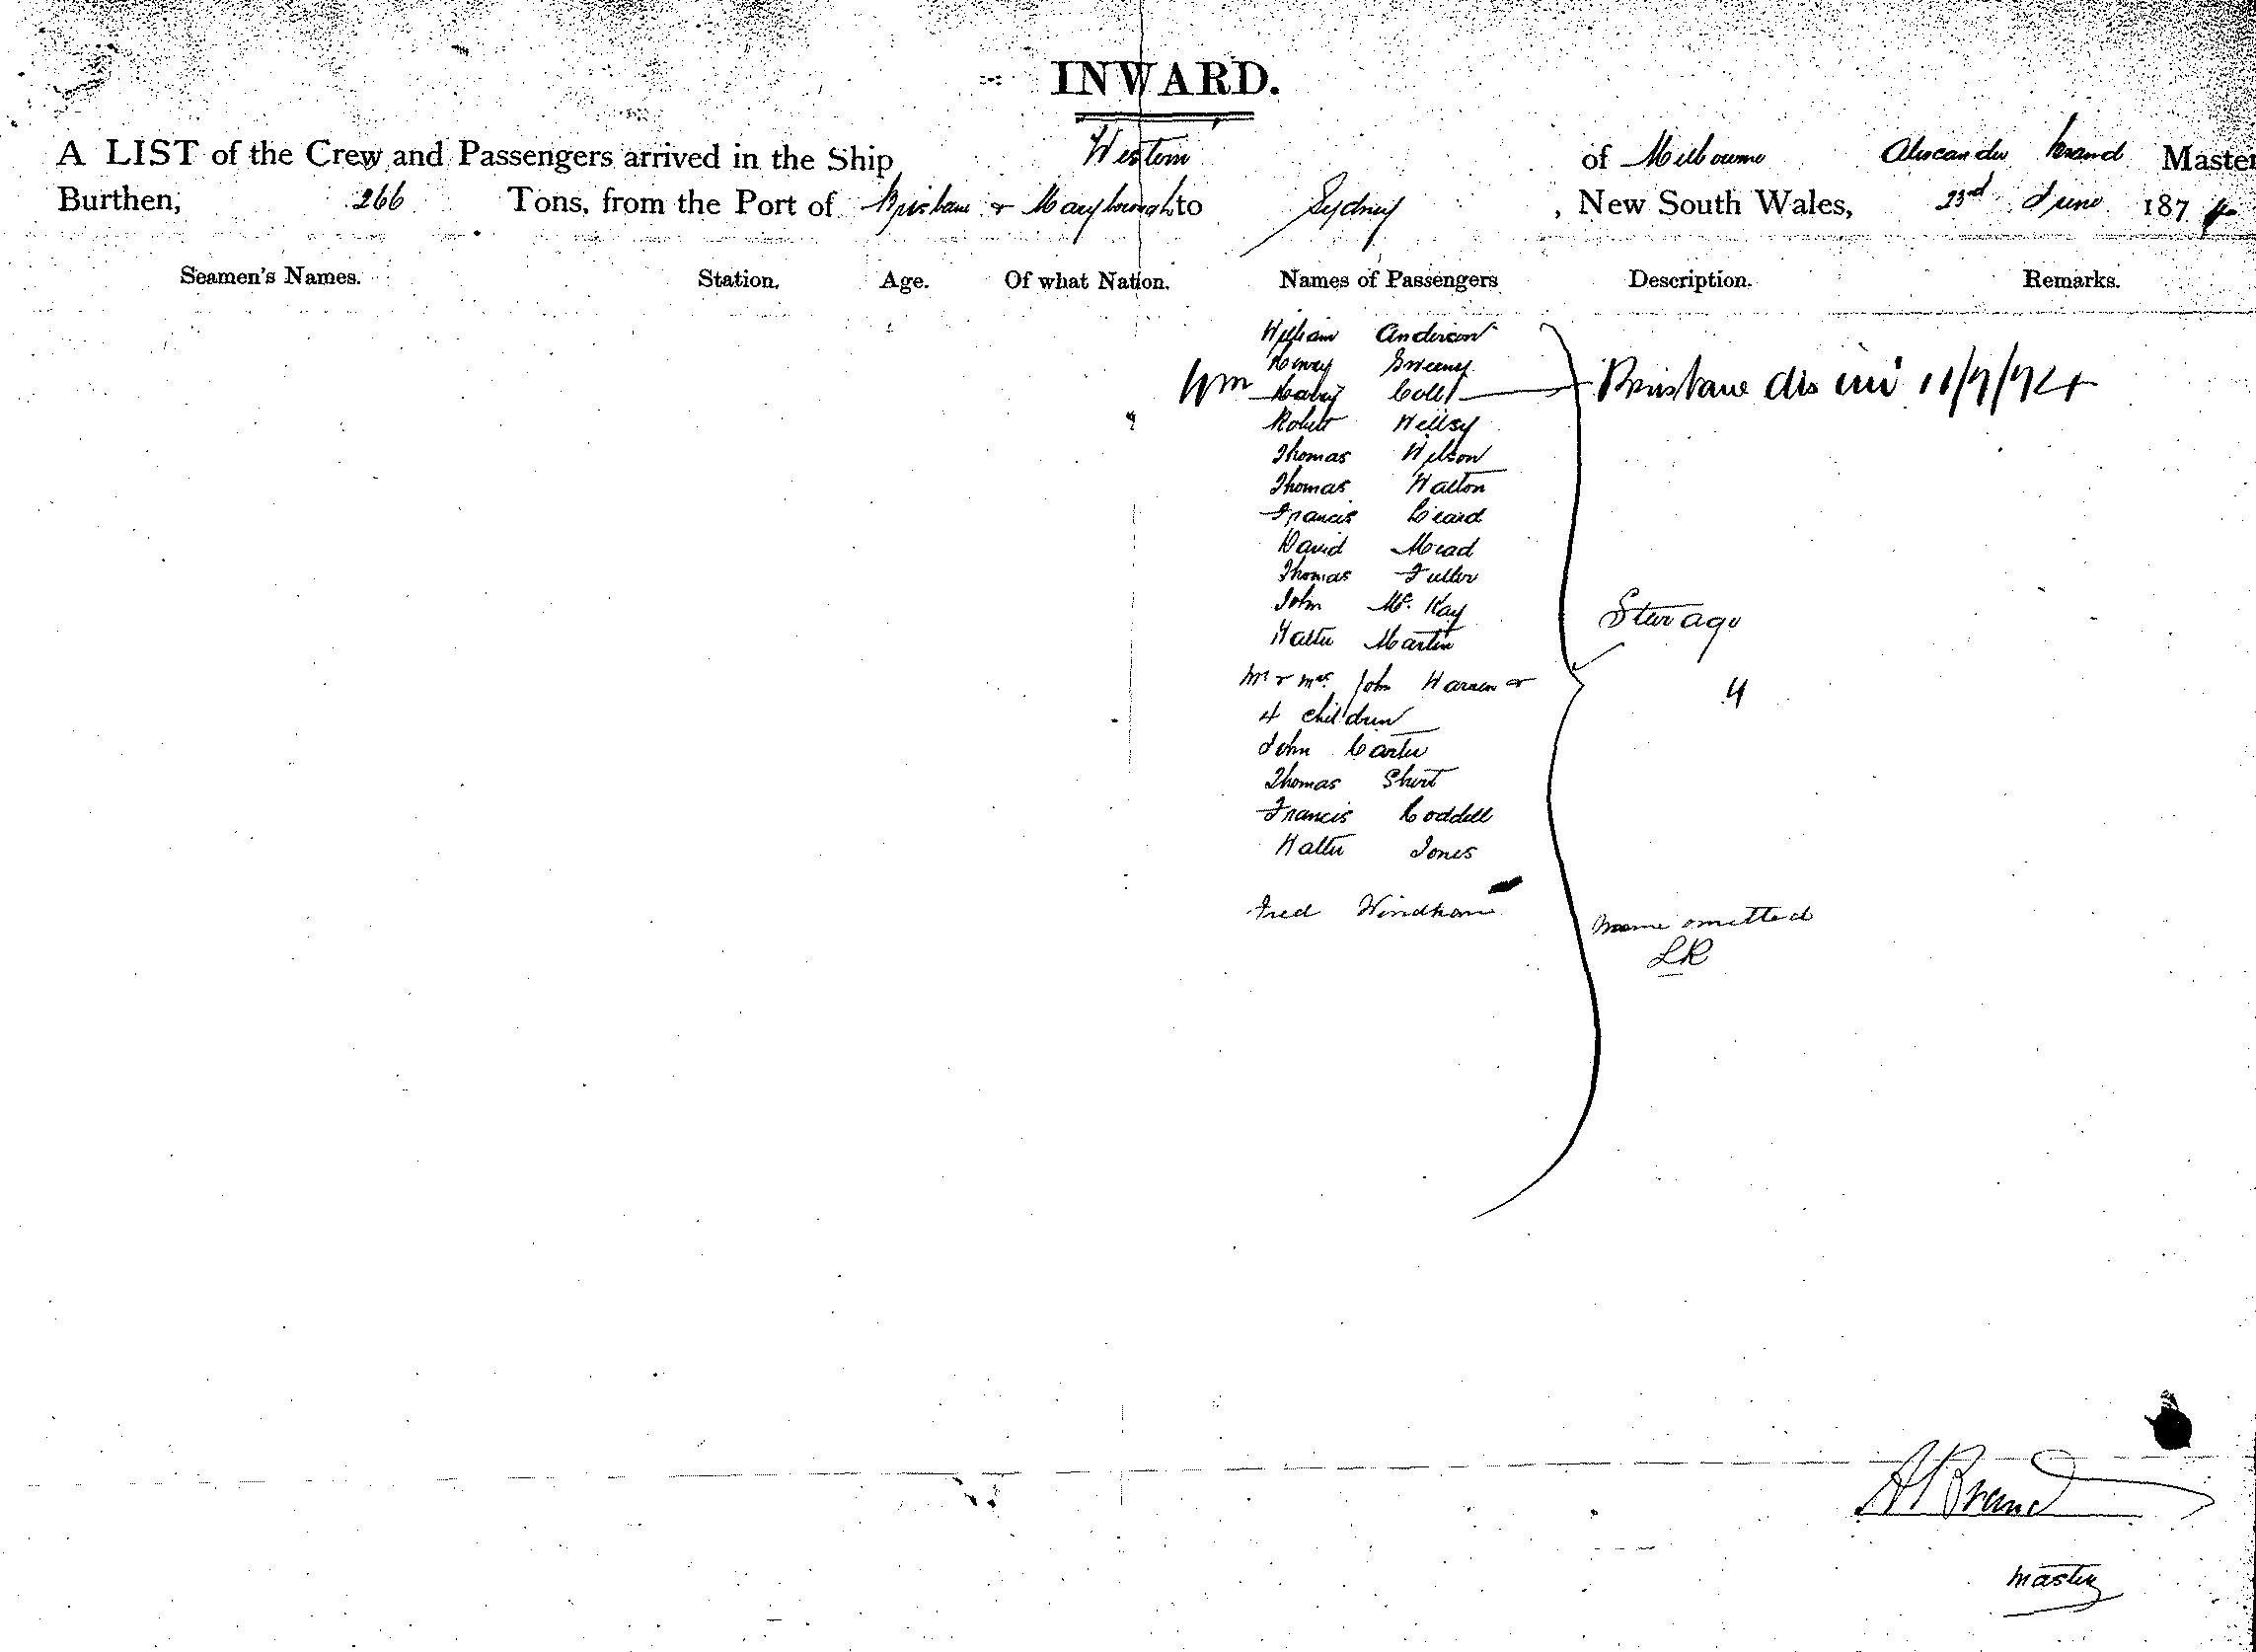 INWARD.
A LIST of the Crew and Passengers arrived in the Ship Western of Melbourne Alexander Brand Master
Burthen, 266 Tons, from the Port of Brisbane & Maryborough to Sydney, New South Wales, 23rd June 1874
Seamen's Names. Station. Age. Of what Nation. Names of Passengers Description. Remarks.
William Anderson
Henry Sweeny
Wm Brisbane 11/7/74
Robert
Thomas Wilson
Thomas Walton
Francis
David Mead
Thomas Fuller
John Mc. Kay
Walter Martin
Steerage
Mr & Mrs. John Warren &
4
4 children
John Carter
Thomas Short
Francis Coddell
Walter Jones
Fred Windham
name omitted
LR
A Brand
Master